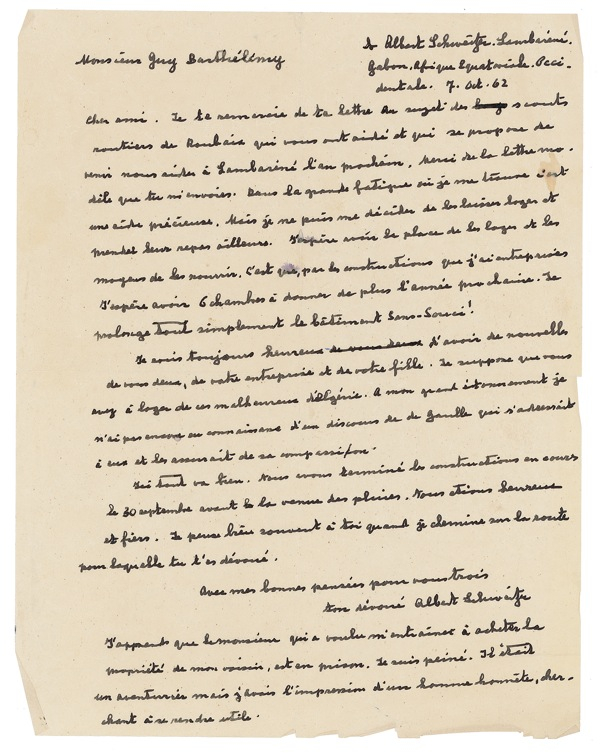 Dr Albert Schweitzer. Lambaréné.
Monsieur Guy Barthélémy
Gabon. Afrique Equatoriale. Occi-
dentale. 7. Oct. 62
Cher ami. Je te remercie de ta lettre au sujet des scouts
routiers de Roubaix qui vous ont aidé et qui se propose de
venir nous aider à Lambaréné l'an prochain. Merci de la lettre mo-
dèle que tu m'envoies. Dans la grande fatigue où je me trouve c'est
une aide précieuse. Mais je ne puis me décider de les laisser loger et
prendre leur repas ailleurs. J'espère avoir la place de les loger et les
moyens de les nourrir. C'est que, par les constructions que j'ai entreprises
J'espère avoir 6 chambres à donner de plus l'année prochaine. Je
prolonge tout simplement le bâtiment Sans-Souci!
Je suis toujours heureux de vous deux d'avoir de nouvelles
de vous deux, de votre entreprise et de votre fille. Je suppose que vous
avez à loger de ces malheureux d'Algérie. A mon grand étonnement je
n'ai pas encore eu connaissance d'un discours de de Gaulle qui s'adressait
à eux et les assurait de sa compassion.
Ici tout va bien. Nous avons terminé les constructions en cours
le 30 septembre avant la venue des pluies. Nous étions heureux
et fiers. Je pense bien souvent à toi quand je chemine sur la route
pour laquelle tu t'es dévoué.
Avec mes bonnes pensées pour vous trois
ton dévoué Albert Schweitzer
J'apprends que le monsieur qui a voulu m'entraîner à acheter la
propriété de mon voisin, est en prison. Je suis peiné. Il était
un aventurier mais j'avais l'impression d'un homme honnête, cher-
chant à se rendre utile.